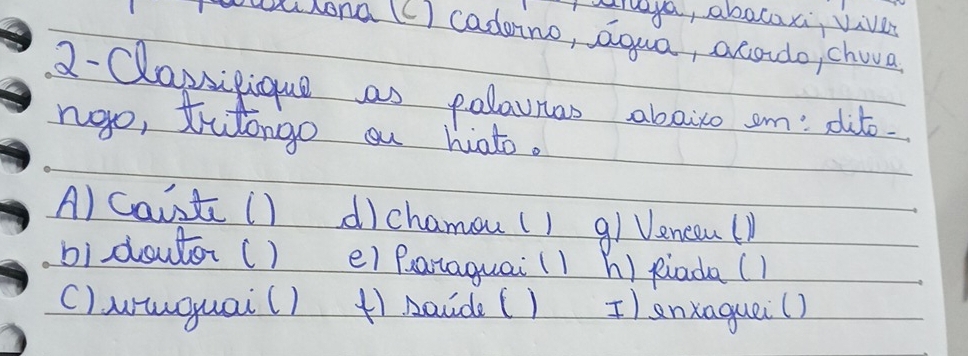 abacaxi, viver
(C) caderno, água, acordo, chuva.
2-Classifique as palavras abaixo em: dito-
ngo, tritongo ou hiato.
A) Caíste () d) chamou () g) Venceu ()
b) doutor () e) Paraguai () h) piada ()
C) uruguai () f) saúde () I) enxaguei ()